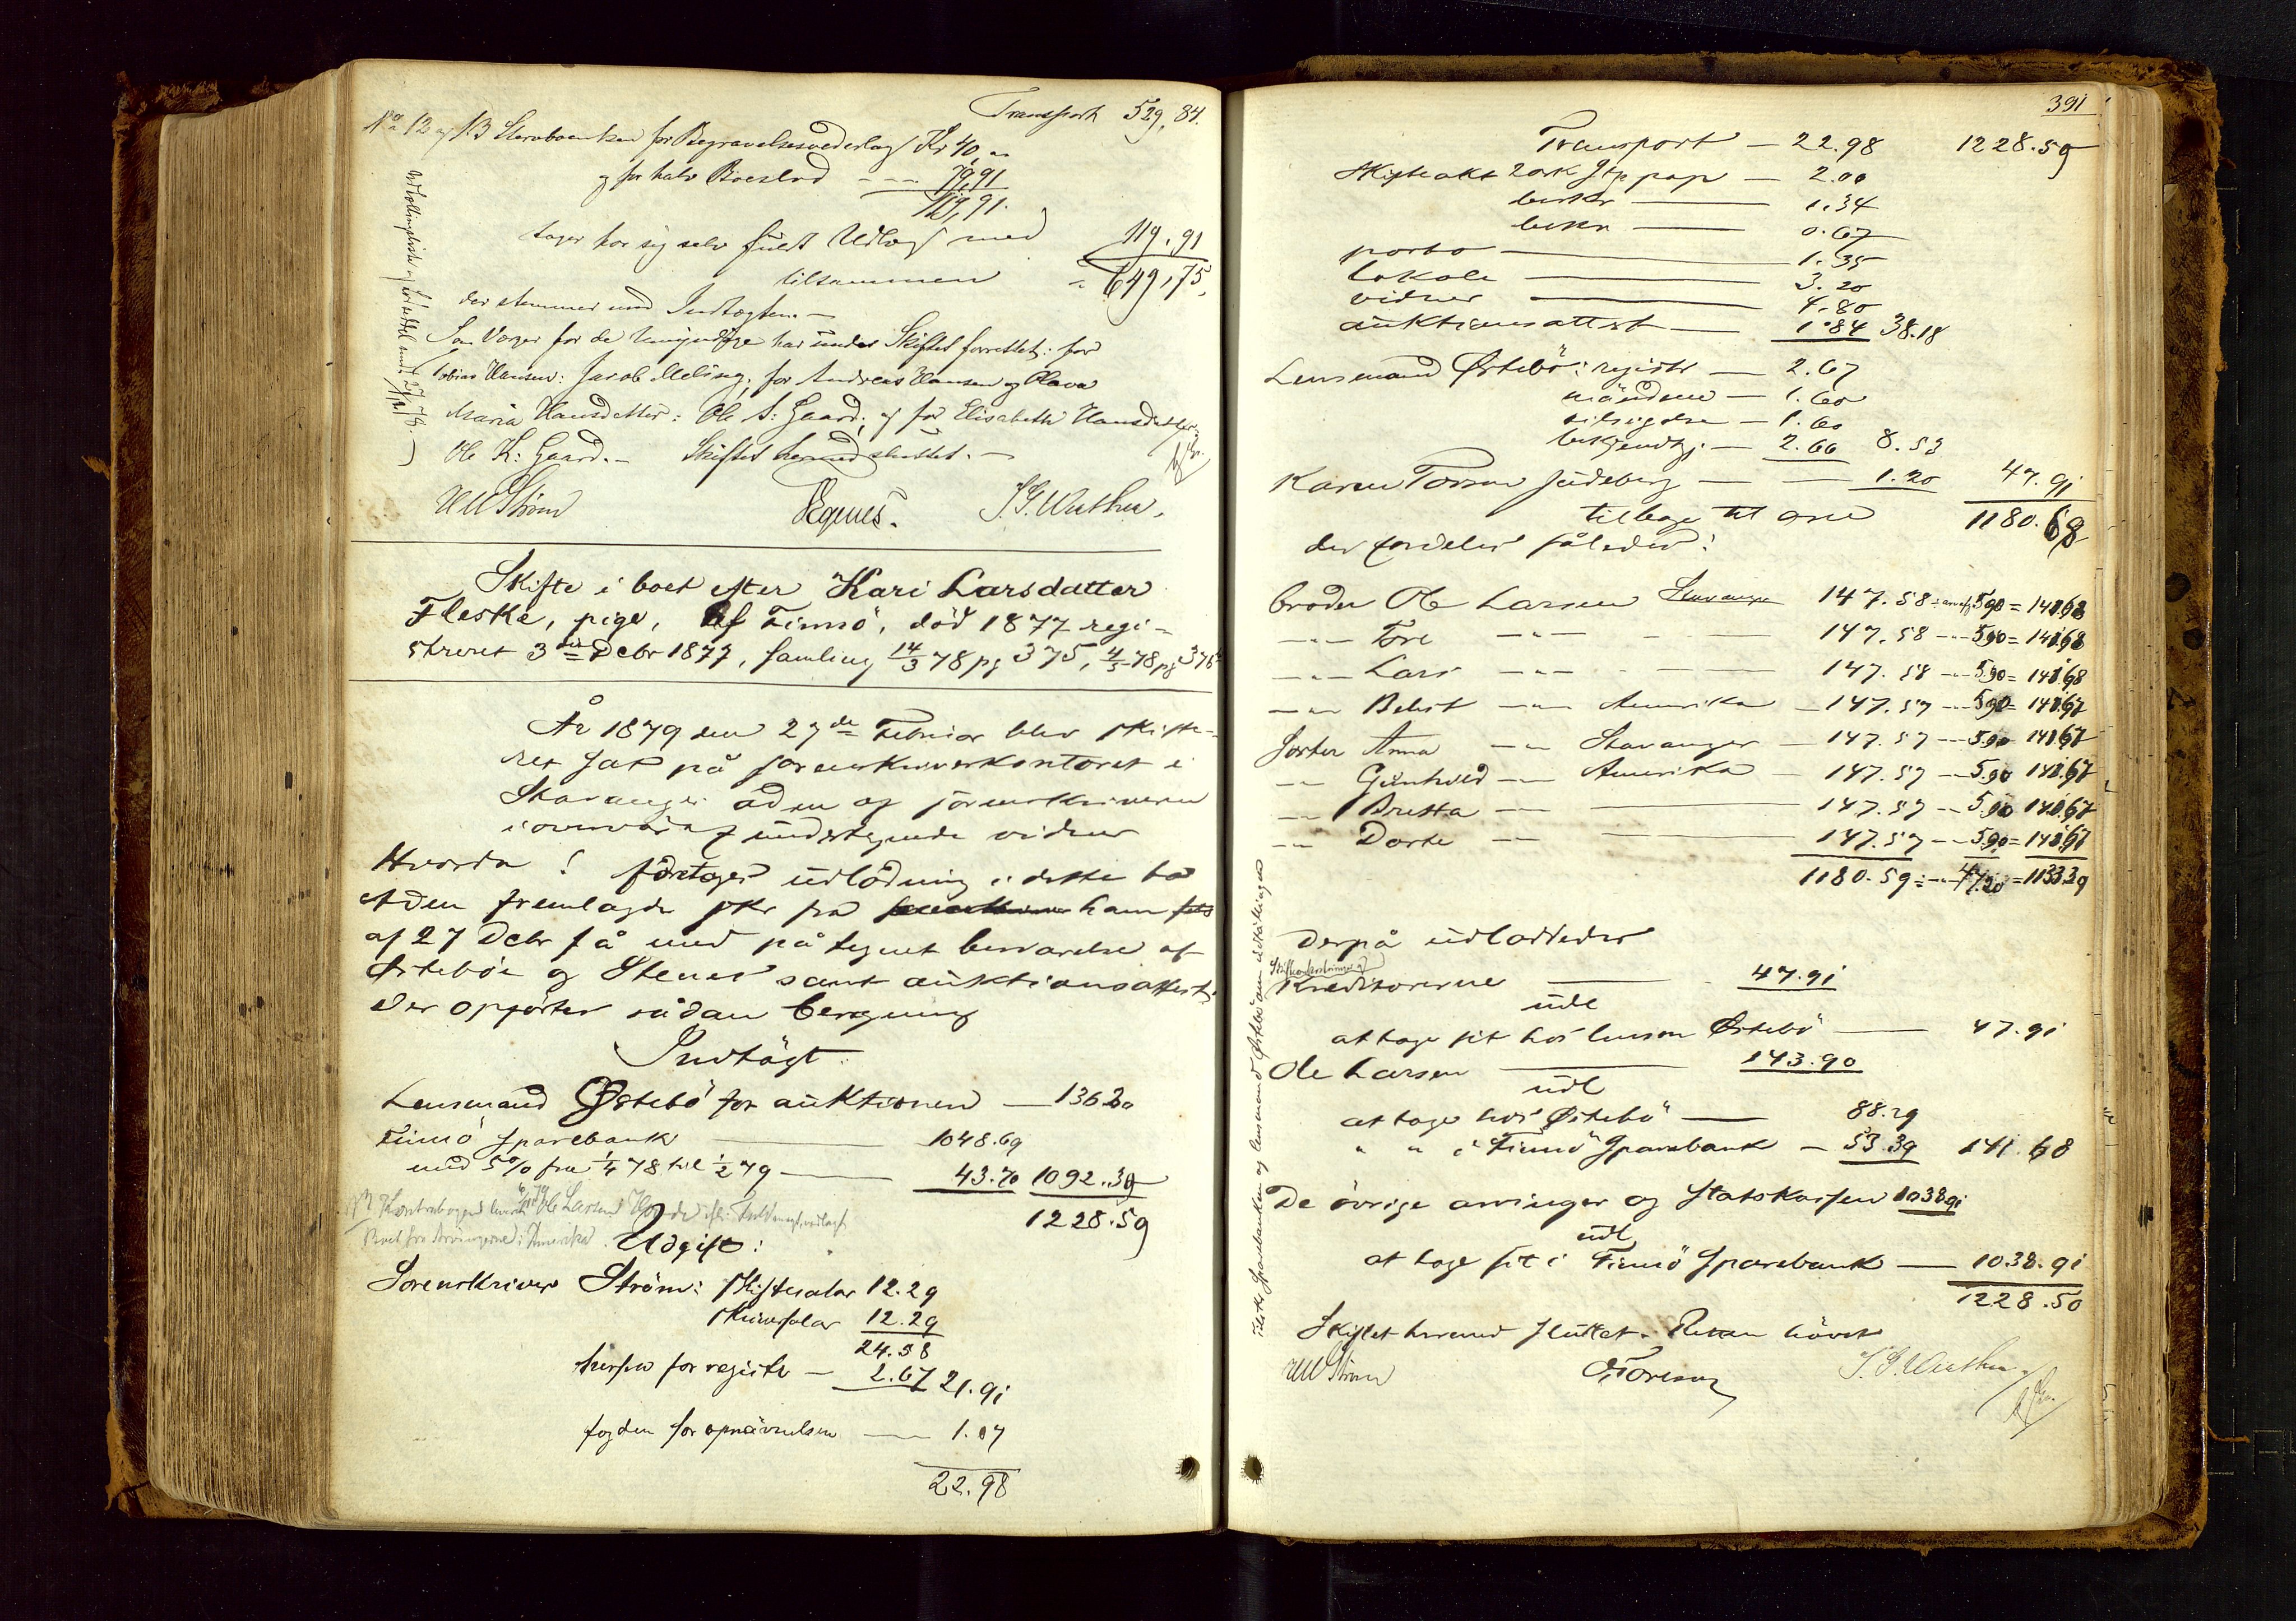 Transport 529,84.
No 12 og 13 Stervboenken for Begravelsesvederlag Kr 40,"
og for halv Boeslod - - - 79,91
119,91.
tager hos sig selv fuldt Udlæg med 119.91
tilsammen " 649,75.
der stemmer med Indtægten. —
Som Værger for de Umyndige har under Skiftet forrettet: for
Tobias Hansen: Jacob Meling; for Andreas Hansen og Olava
Maria Hansdatter: Ole S. Gaard; og for Elisabeth Hansdatter:
Ole K. Gaard. — Skiftet hermed sluttet. —
UW Strøm Egenes. J.G. Wathne.
Skifte i boet efter Kari Larsdatter
Fleske, pige, af Finnö, död 1877 regi-
streret 3die Debr 1877, samling 14/3 78 pg 375, 4/5 78 pg 376
År 1879 den 27de Februar blev skifte-
ret sat på sorenskriverkontoret i
Stavanger af den og sorenskriveren
i overvær af undertegnede vidner
Hvorda! foretoges udlodning i dette bo
Aden fremlagde skr fra ham
af 27 Debr f å med påtegnet besvarelse af
Østebö og Stenes samt auktionsattest.
Der opgjortes sådan beregning
Indtægt:
Lensmand Østebö for auktionen — 136.20
Finnö Sparebank — 1048.69
med 5% fra 1/4 78 til 1/2 79 — 43.70 1092.39
1228.59
Udgift:
Sorenskriver Ström: skiftesalær 12.29
skriversalær 12.29
24.58
herfra for registr — 2.67 21.91
fogden for opnævnelsen — 1.07
22.98
391
Transport — 22.98 1228.59
Skifteakt 2 ark stp pap — 2.00
beskr — 1.34
bekr — 0.67
porto — 1.35
lokale — 3.20
vidner — 4.80
auktionsattest — 1.84 38.18
Lensmand Østebö: registr — 2.67
mændene — 1.60
tilsigelse — 1.60
bekjendtgj — 2.66 8.53
Karen Torson Judeberg — 1.20 47.91
tilbage til arv 1180.68
der fordeles således:
broder Ole Larsen Stavanger 147.58 ÷ arveafg 5.90 = 141.68
—"— Tore —"— — 147.58 —"— 5.90 = 141.68
—"— Lars —"— — 147.58 —"— 5.90 = 141.68
—"— Behst —"— Amerika — 147.57 —"— 5.90 = 141.67
Söster Anna —"— Stavanger — 147.57 —"— 5.90 141.67
—"— Gunhild —"— Amerika — 147.57 —"— 5.90 141.67
—"— Britta —"— — 147.57 —"— 5.90 141.67
—"— Dorte —"— — 147.57 —"— 5.90 = 141.67
1180.59 ÷ —"— 47.20 = 1133.39
Derpå udlodledes
Kreditorerne — 47.91
udl
at tage sit hos lensm Østebö — 47.91
Ole Larsen — 143.90
udl
at tage hos Østebö — 88.29
" " i Finnö Sparebank — 53.39 141.68
De övrige arvinger og Statskassen 1038.91
udl
at tage sit i Finnö Sparebank — 1038.91
1228.50
Skiftet hermed sluttet. Retten hævet
UW Strøm O. Toreson J.G. Wathne